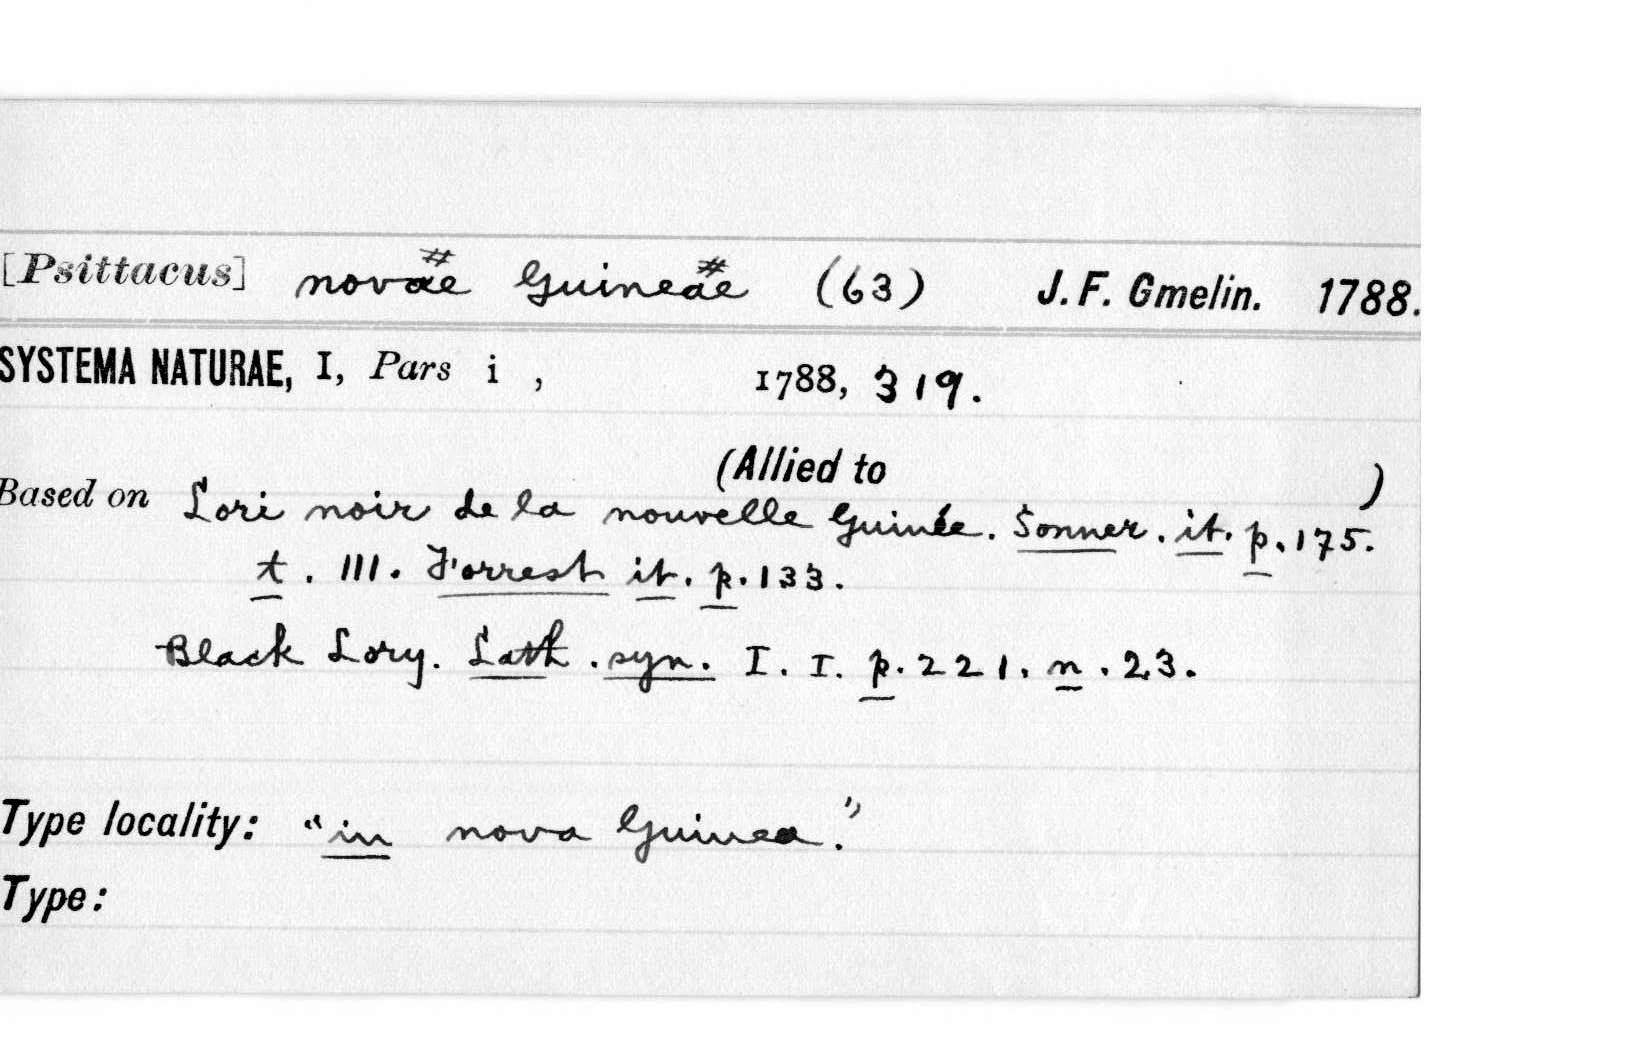 [Psittacus] novae Guineae (63) J. F. Gmelin. 1788.
SYSTEMA NATURAE, I, Pars i , 1788, 319.
(Allied to )
Based on Lori noir de la nouvelle Guinée. Sonner. it. p. 175.
t. 111. Forrest it. p. 133.
Black Lory. Lath. syn. I. I. p. 221. n. 23.
Type locality: "in nova Guinea."
Type: